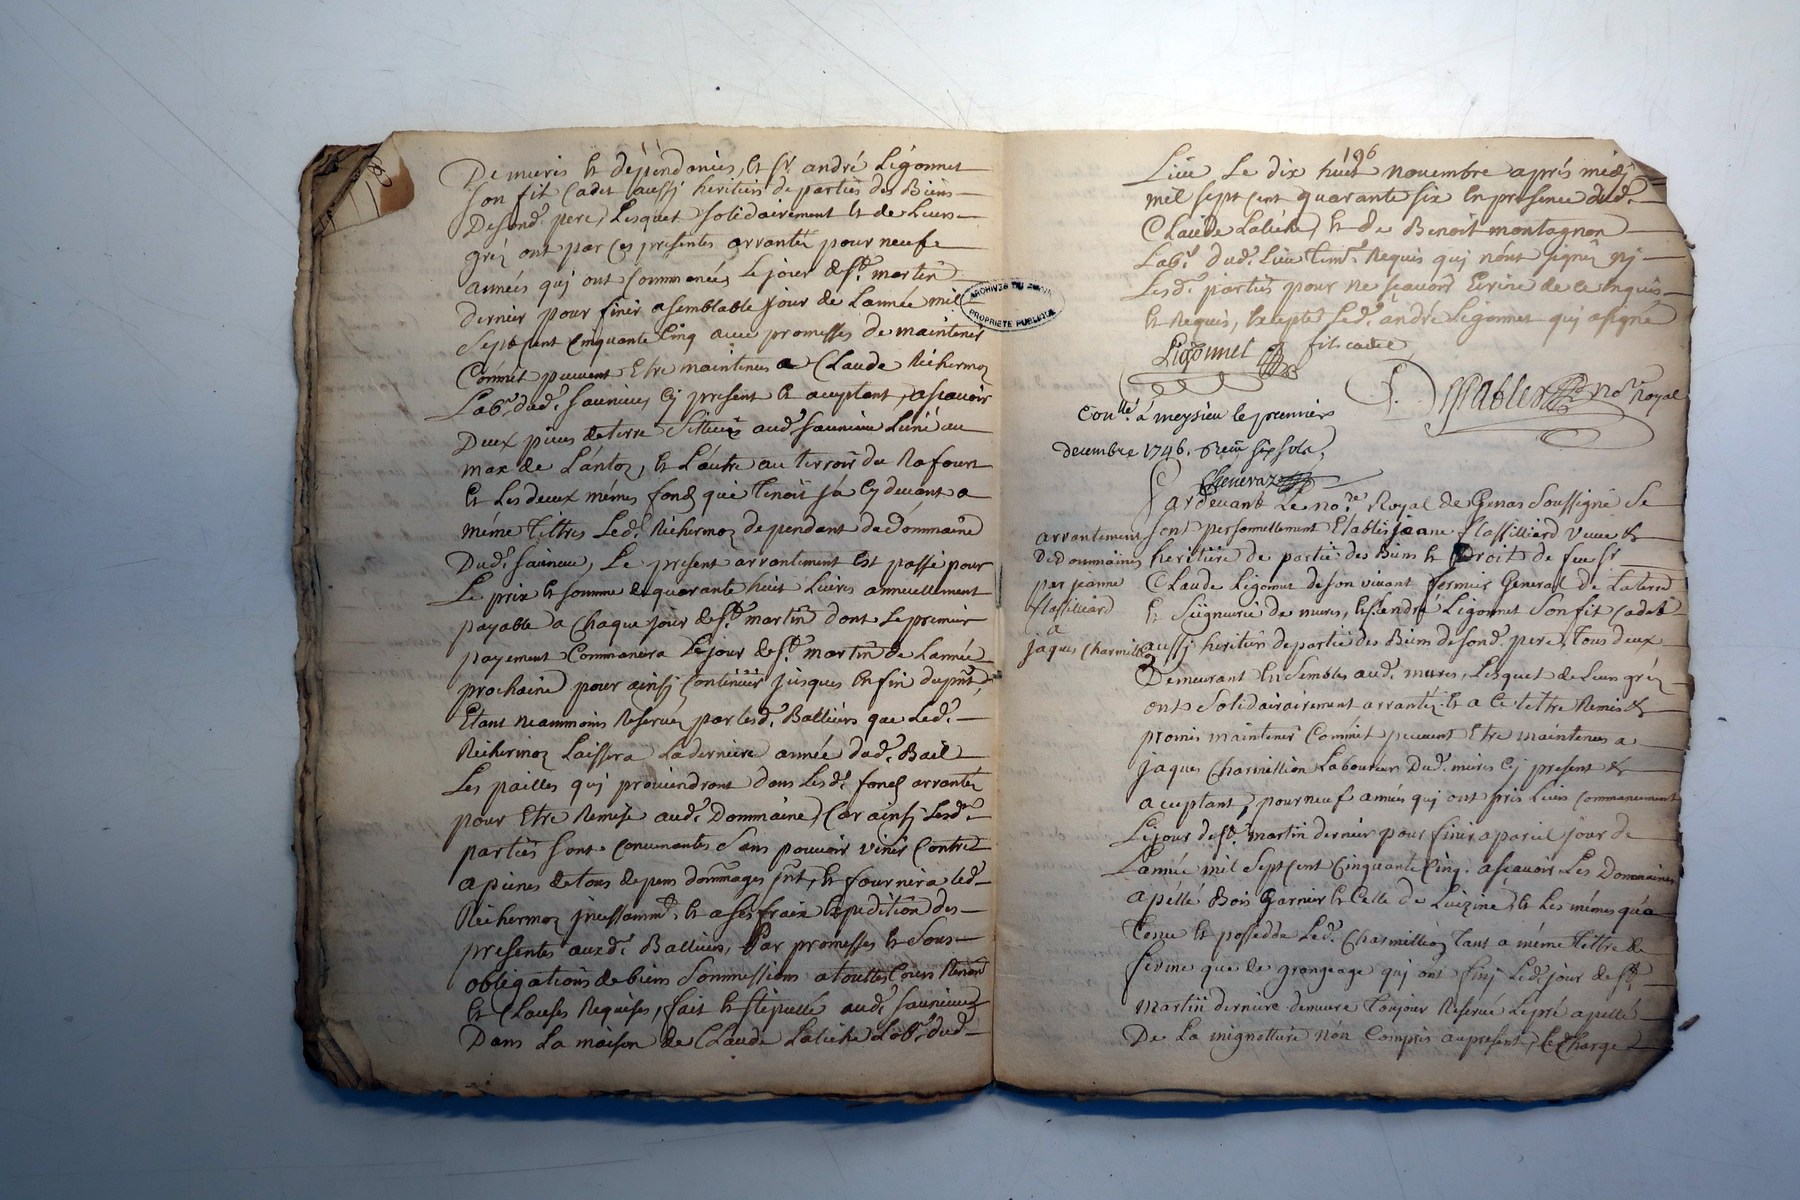 De mures & dépéndences, & Sr. andré Ligonnet
Son fit Cadet aussi heritier de parties des Biens
De fond. pere, Lesquet Solidairement & de Leurs
gréz ont par Ces presentes arrantéz pour neufe
années quj ont Commancées Le jour de St. martin
dernier pour finir a semblable jour de Lannée mil
Sept Cent Cinquante Cinq avec promesses de maintenir
Commét peuvent Etre maintenus a Claude Richermoz
Labr. dud. Saunieres Cj present & aceptant, ascavoir
Deux pieces de terre Sittueéz aud. Sauniere Lune au
max de Lantoz, & Láutre au terroir du Rafourt
Et Les deux mémes fond que Tenoit ja Cy devant a
méme Tittres Led. Richermoz dependant du Dommaine
Dud. Saunieres, Le present arrantement Est passé pour
Le prix & somme de quarante huit Livres annuellement
payable a Chaque jour de St. martin dont Le premier
payement Commancera Le jour de St. martin de Lannée
prochaine pour ainsj Continüer jusques En fin du pnt,
Etant neammoins Reservéz par Lesd. Ballieurs que Led.
Richermoz Laissera La derniere année dud. Bail
Les pailles quj proviendront dans Lesd. fond arrantéz
pour Etre Remise aud. Dommaine, Car ainsj Lesd.
partiés sont Convenantes Sans pouvoir venir Contre
a peines de tous depens dommages jnt, & fournira Led.
Richermoz jncessamment & a ses fraix Expedition des
presentes auxd. Ballieurs, Par promesses & Sous
obligations de biens Sommissions a toutes Cours Renon
& Clauses Requises, fait & stipullé aud. Saunieres
Dans La maison de Claude Laliche Labr. dud.
196
Lieu Le dix huit novembre aprés midj
mil sept cent quarante six En presence dud.
Claude Laliche, & de Benoit montagnon
Labr. dud. Lieu Temt. Requis quj nónt signéz nj
Lesd. partiés pour ne scavoir Ecrire de ce Enquis
& Requis, Excepté Led. andré Ligonnet quj a signé
Ligonnet fit cadet
nore. Royal
Conllé. á meysieu le premiers
decembre 1746. Receu six sols,
Chenevaz
Pardevant Le nore. Royal de Genas Soussigné Se
arrantement
sont personnellement Etablis jeane flassilliard veuve &
De Dommaines
heritiere de partie des Biens & Droits de feu Sr.
par jeanne
Claude Ligonnet de son vivant Fermier General de La terre
flassilliard
& Seigneurie de mures, & Sr. andré Ligonnet Son fit Cadet
a
jaques Charmillion
aussj heritier de partie des Biens de fond. pere, Tous deux
Demeurant Ensembles aud. mures, Lesquet de Leurs gréz
ont Solidairairement arrantéz & a Ce tettre Remis &
promis maintenir Commét peuvent Etre máintenus a
jaques Charmillion Laboureur Dud. mures Cj present &
aceptant, pour neuf années quj ont pris Leurs Commancement
Le jour de St. martin dernier pour finir a pareil jour de
Lannée mil Sept Cent Cinquante Cinq, ascavoir Les Dommaines
apéllé Bois Garnier & Celle de Luizine, & Les mémes qu'a
Tenu & posseddé Led. Charmillion Tant a méme tittre de
ferme que de grangeage quj ont finj Led. jour de St.
martin derniere demeure Toujour Reservé Le pré apellé
De La mignottiere nón Compris au present, Le Charge
ARCHIVES DU
PROPRIETE PUBLIQUE